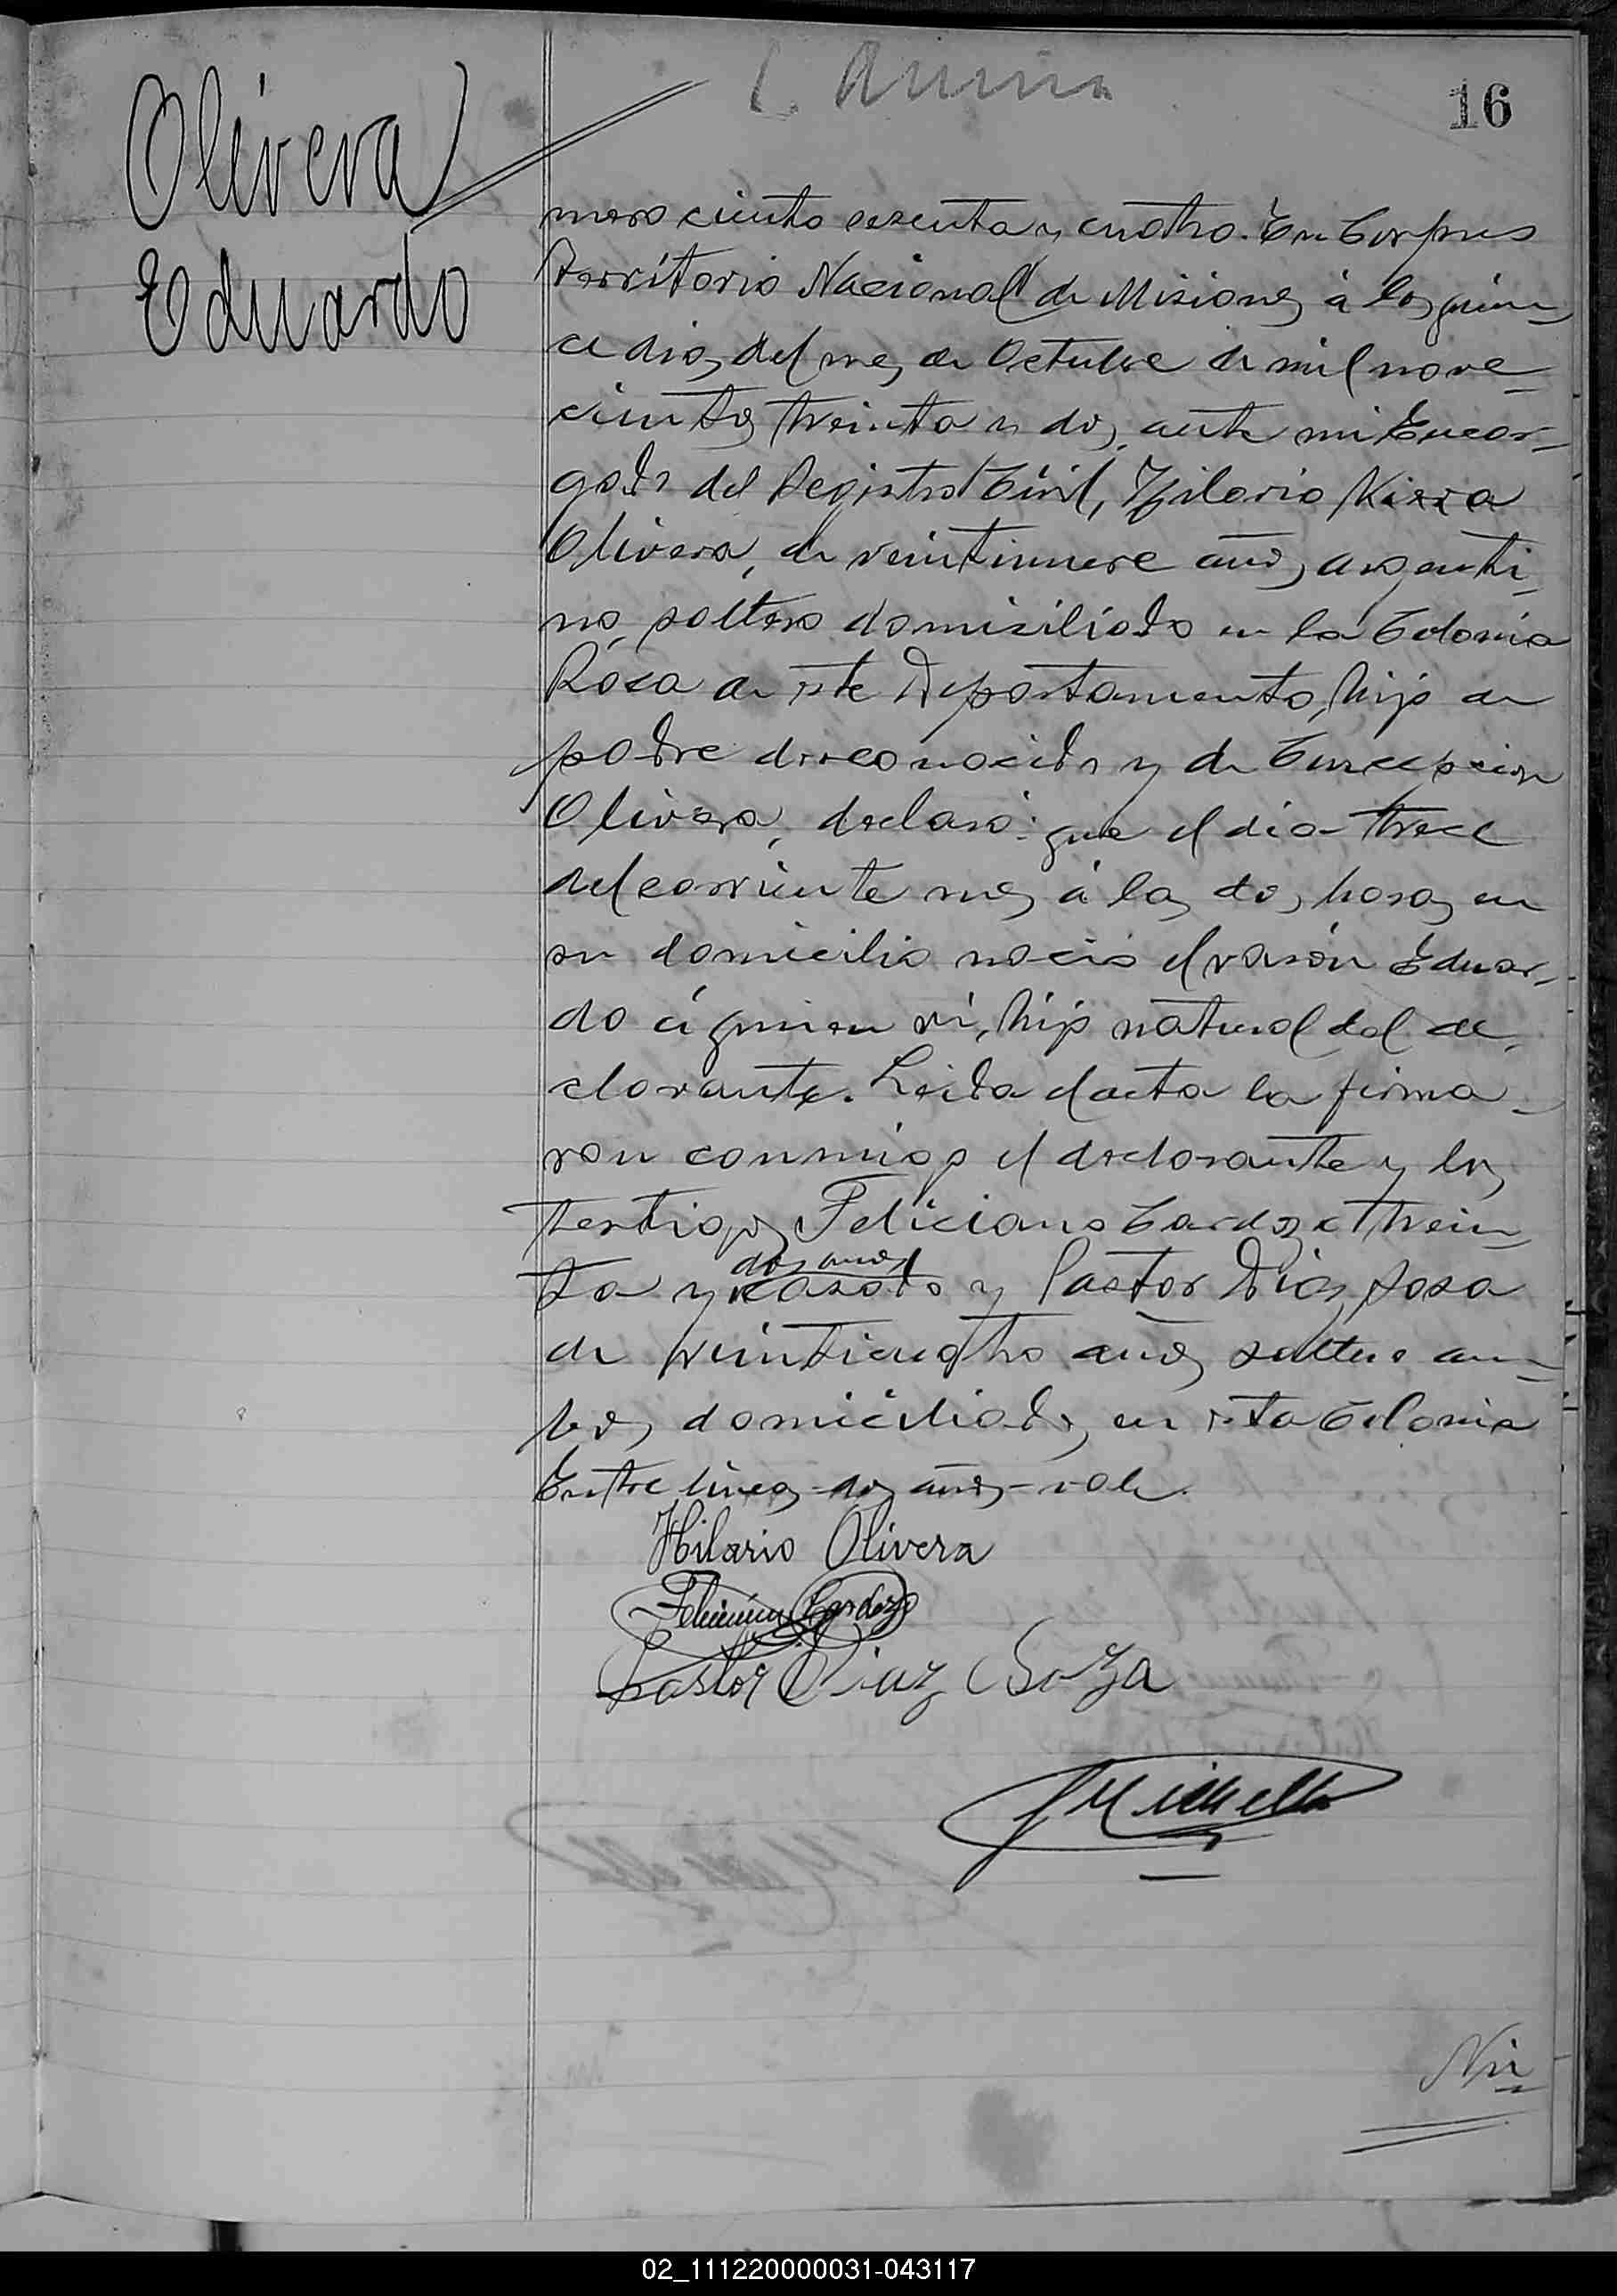 Olivera
Eduardo
16
mero ciento sesenta y cuatro. En Corpus
Territorio Nacional de Misiones á los quin
ce dias del mes de Octubre de mil nove
cientos treinta y dos, ante mi Encar-
gado del Registro Civil, Hilario
Olivera, de veintinueve años, argenti
no, soltero domisiliado en la Colonia
Roca de este Departamento, hijo de
padre desconocido y de Concepcion
Olivera, declaró: que el dia trece
del corriente mes á las dos horas en
su domicilio nació el varón Eduar-
do á quien ví, hijo natural del de
clarante. Leida el acta la firma-
ron conmigo el declarante y los
testigos Feliciano Cardozo trein
dos años
ta y casado y Pastor Dias Sosa
de veinticuatro años soltero am-
bos domiciliados en esta Colonia
Entre lineas-dos años-vale.
Hilario Olivera
Feliciano Cardozo
Pastor Diaz Soza
Ni
02_111220000031-043117